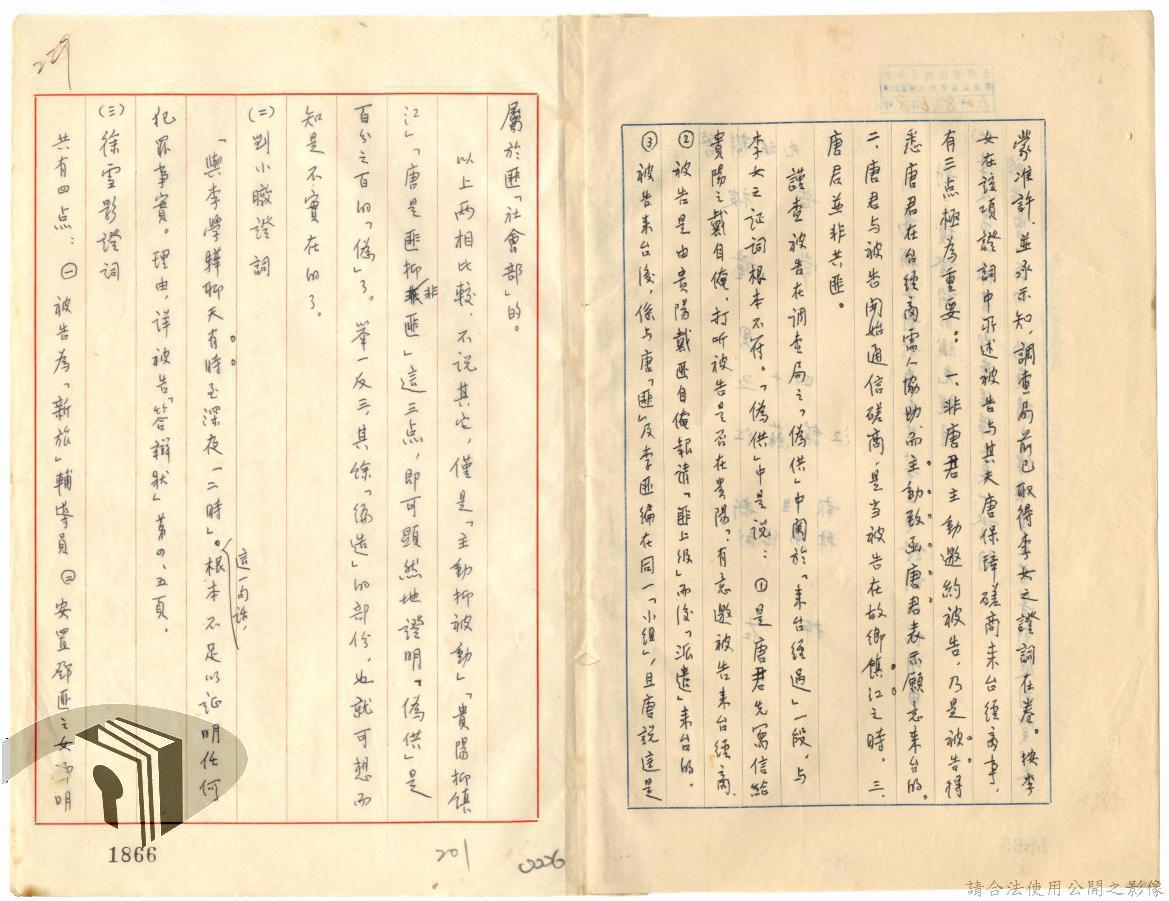 蒙准許，並承示知，調查局前已取得李女之證詞在卷。按李
女在該項證詞中所述被告與其夫唐保璋磋商來台經商事，
有三点極為重要：一、非唐君主動邀約被告，乃是被告得
悉唐君在台經商需人協助而主動致函唐君表示願意來台的。
二、唐君与被告開始通信磋商，是当被告在故鄉鎮江之時。三、
唐君並非共匪。
謹查被告在調查局之「偽供」中関於「來台經過」一段，与
李女之证詞根本不符。「偽供」中是說：①是唐君先寫信給
貴陽之戴自俺，打听被告是否在貴陽，有意邀被告來台經商。
②被告是由貴陽戴匪自俺報請「匪上級」而後「派遣」來台的。
③被告來台後，係与唐「匪」及李匪編在同一「小組」，且唐説這是
屬於匪「社會部」的。
以上两相比較，不说其它，僅是「主動抑被動」「貴陽抑鎮
江」「唐是匪抑非匪」這三点，即可顯然地證明「偽供」是
百分之百的「偽」了。舉一反三，其餘「編造」的部份，也就可想而
知是不實在的了。
(二)劉小嶶證詞
「與李學驊聊天有時至深夜一二時」。這一句話，根本不足以证明任何
犯罪事實。理由，详被告「答辯狀」第四、五頁。
(三)徐雪影證詞
共有四点：㈠被告為「新旅」輔導員㈡安置邵匪之女邵明
1866
201
229
請合法使用公開之影像